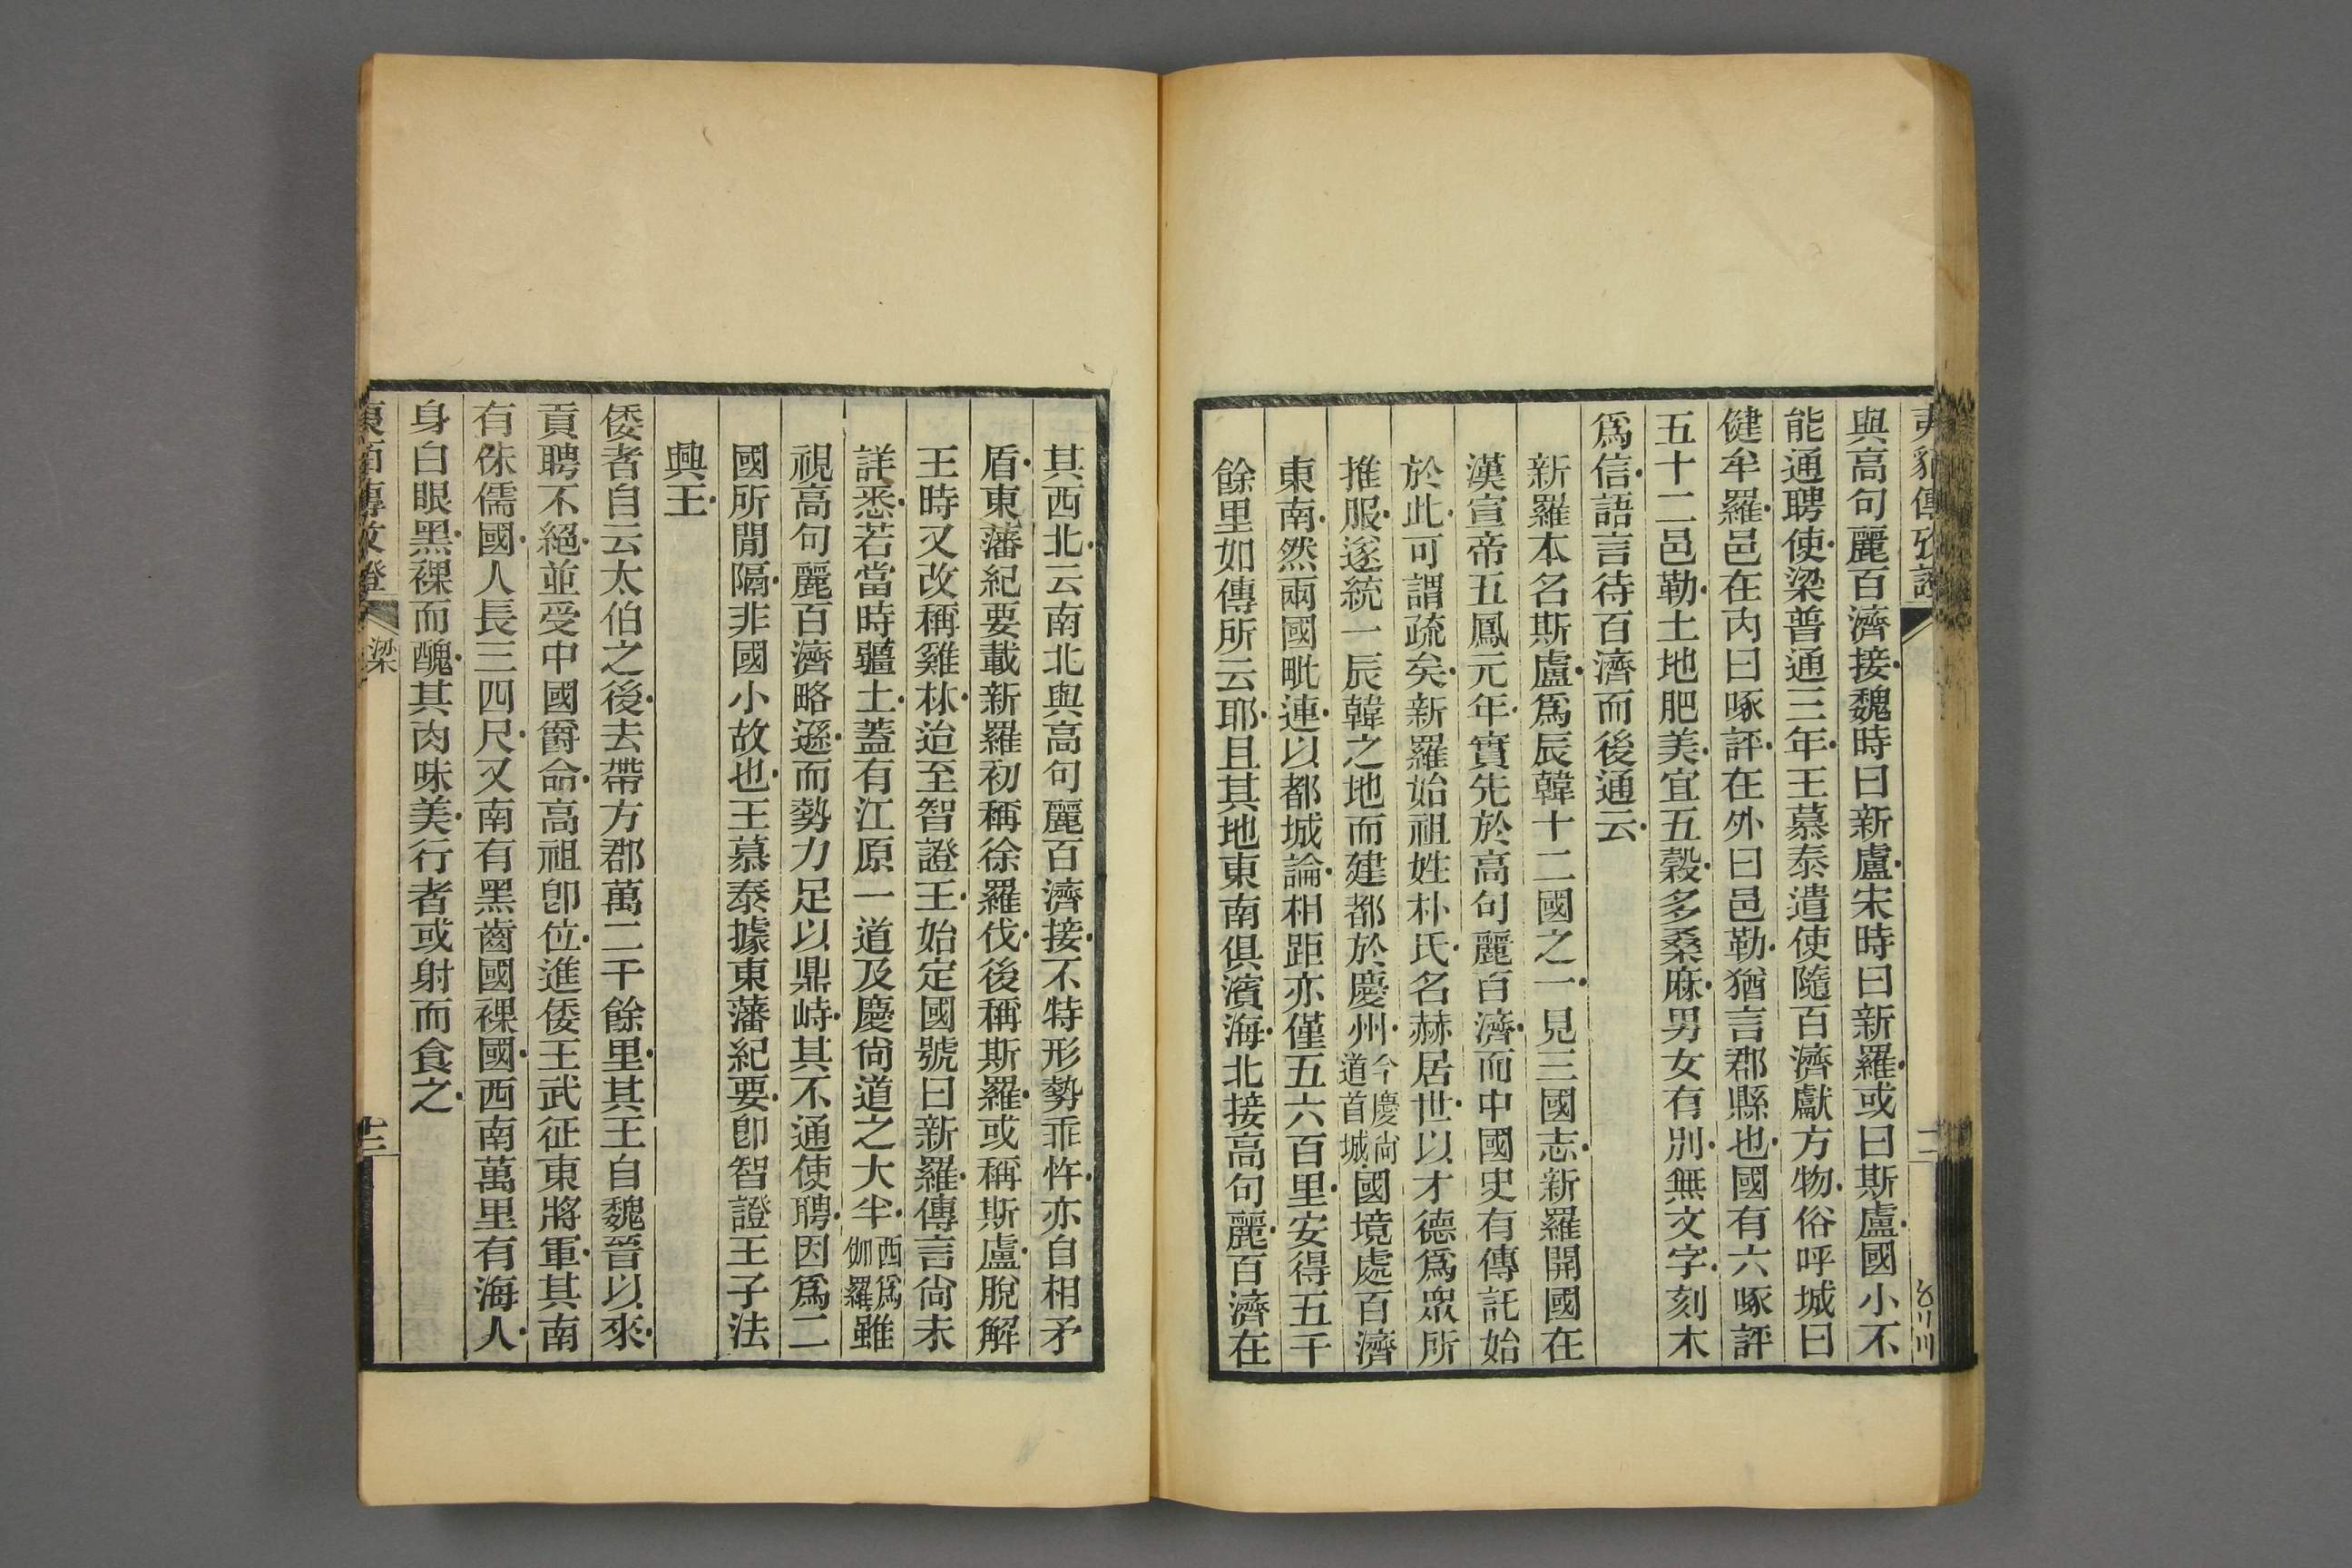 與高句麗百濟接魏時曰新盧宋時曰新羅或曰斯盧國小不
能通聘使梁普通三年王慕泰遣使隨百濟獻方物俗呼城曰
健牟羅邑在內曰啄評在外曰邑勒猶言郡縣也國有六啄評
五十二邑勒土地肥美宜五穀多桑麻男女有別無文字刻木
爲信語言待百濟而後通云
新羅本名斯盧爲辰韓十二國之一見三國志新羅開國在
漢宣帝五鳳元年實先於高句麗百濟而中國史有傳託始
於此可謂疏矣新羅始祖姓朴氏名赫居世以才德爲眾所
推服遂統一辰韓之地而建都於慶州今慶尙道首城國境處百濟
東南然兩國毗連以都城論相距亦僅五六百里安得五千
餘里如傳所云耶且其地東南俱濱海北接高句麗百濟在
其西北云南北與高句麗百濟接不特形勢乖忤亦自相矛
盾東藩紀要載新羅初稱徐羅伐後稱斯羅或稱斯盧脫解
王時又改稱雞林迨至智證王始定國號曰新羅傳言尙未
詳悉若當時疆土蓋有江原一道及慶尙道之大半西爲伽羅雖
視高句麗百濟略遜而勢力足以鼎峙其不通使聘因爲二
國所閒隔非國小故也王慕泰據東藩紀要卽智證王子法
興王
倭者自云太伯之後去帶方郡萬二千餘里其王自魏晉以來
貢聘不絕並受中國爵命高祖卽位進倭王武征東將軍其南
有侏儒國人長三四尺又南有黑齒國裸國西南萬里有海人
身白眼黑裸而醜其肉味美行者或射而食之
梁